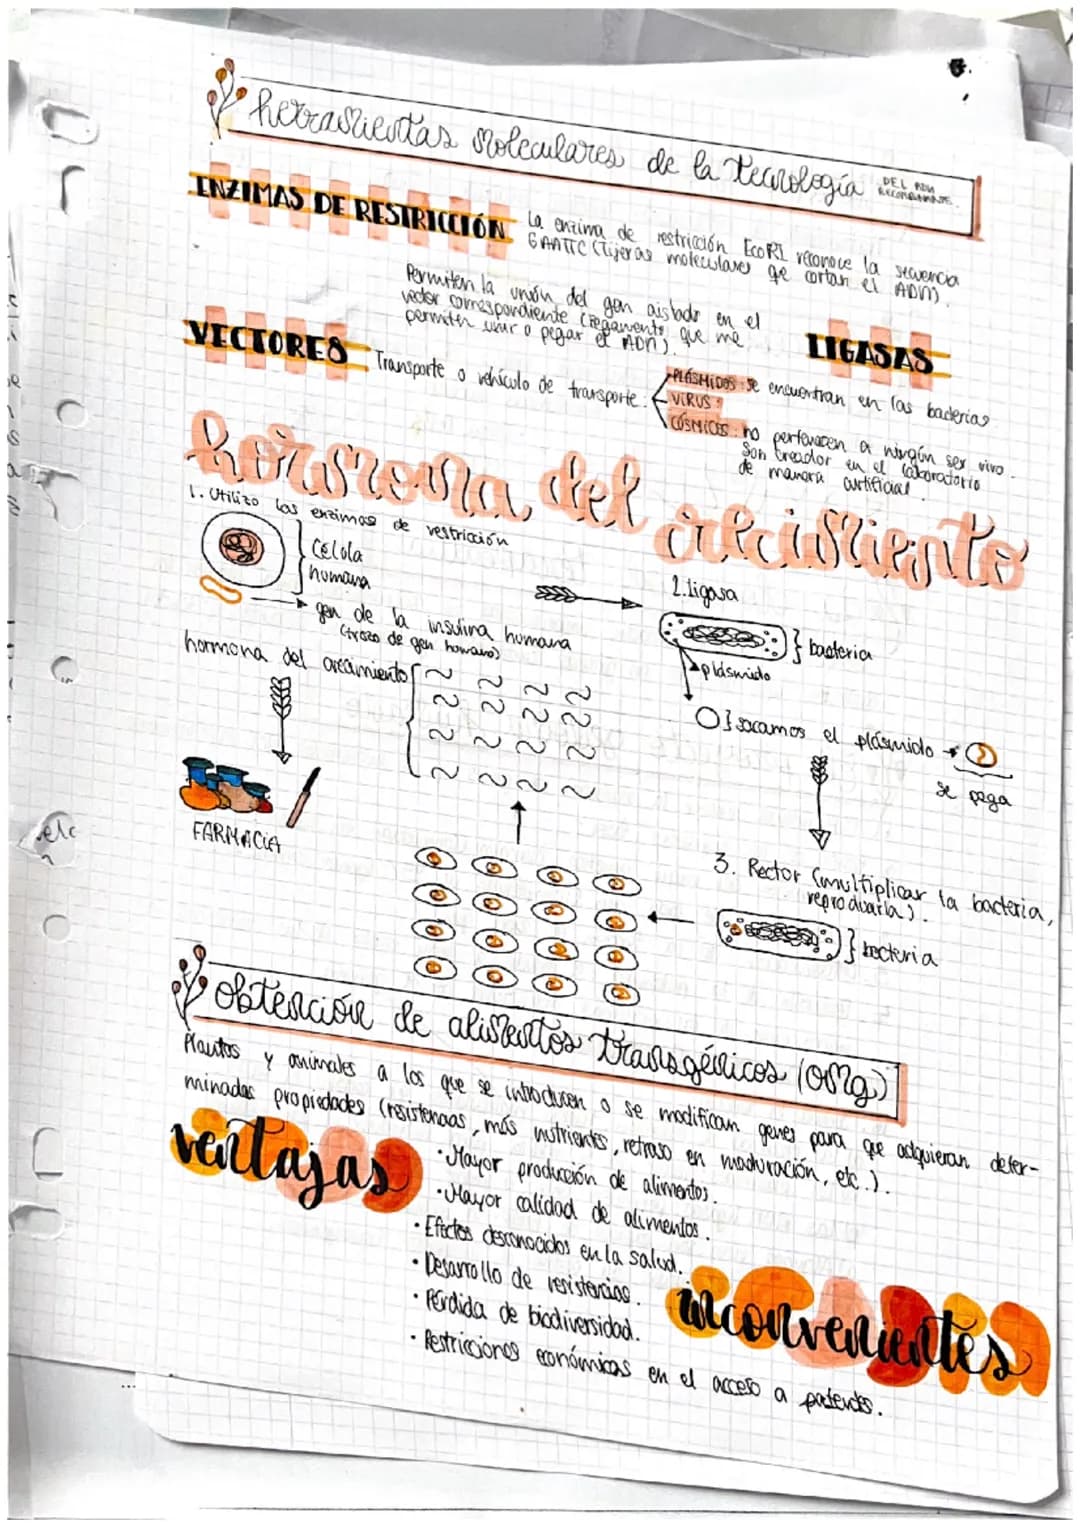 herramientas moleculares de la tecnología DEL ADN
RECOMBINANTE.
ENZIMAS DE RESTRICCIÓN La enzima de restricción EcoRI reconoce la secuencia
GAATTC (Tijeras moleculares qe cortan el ADN).
Permiten la unión del gen aislado en el
vector correspondiente (Pegamento, que me
permitn unir o pegar el ADN).
LIGASAS
VECTORES Transporte o vehículo de transporte:
PLÁSMIDOS: se encuentran en las bacterias
VIRUS:
CÓSMICOS: no pertenecen a ningún ser vivo.
Son creador en el laboratorio
de manera artificial.
hormona del crecimiento
1. Utilizo las enzimas de restricción
Célula
humana
gen de la insulina humana
(trozo de gen humano)
2. Ligasa
bacteria
plásmido
sacamos el plásmido
se pega
hormona del crecimiento
FARMACIA
3. Rector (multiplicar la bacteria,
reproducirla).
bacteria
obtención de alimentos transgénicos (OMg)
Plantas y animales a los que se introducen o se modifican genes para qe adquieran deter-
minadas propiedades (resistencias, más nutrientes, retraso en maduración, etc.).
ventajas
· Mayor producción de alimentos.
· Mayor calidad de alimentos.
· Efectos desconocidos en la salud.
· Desarrollo de resistencias.
· Pérdida de biodiversidad.
· Restricciones económicas en el acceso a patentes.
inconvenientes